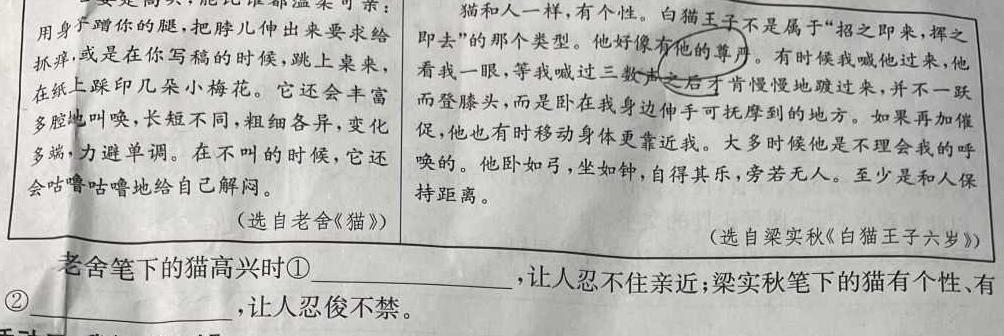 用身子蹭你的腿,把脖儿伸出来要求给
抓痒,或是在你写稿的时候,跳上桌来,
在纸上踩印几朵小梅花。它还会丰富
多腔地叫唤,长短不同,粗细各异,变化
多端,力避单调。在不叫的时候,它还
会咕噜咕噜地给自己解闷。
(选自老舍《猫》)
猫和人一样,有个性。白猫王子不是属于“招之即来,挥之
即去”的那个类型。他好像有他的尊严。有时候我喊他过来,他
看我一眼,等我喊过三数声之后才肯慢慢地踱过来,并不一跃
而登膝头,而是卧在我身边伸手可抚摩到的地方。如果再加催
促,他也有时移动身体更靠近我。大多时候他是不理会我的呼
唤的。他卧如弓,坐如钟,自得其乐,旁若无人。至少是和人保
持距离。
(选自梁实秋《白猫王子六岁》)
老舍笔下的猫高兴时①,让人忍不住亲近;梁实秋笔下的猫有个性、有
②,让人忍俊不禁。